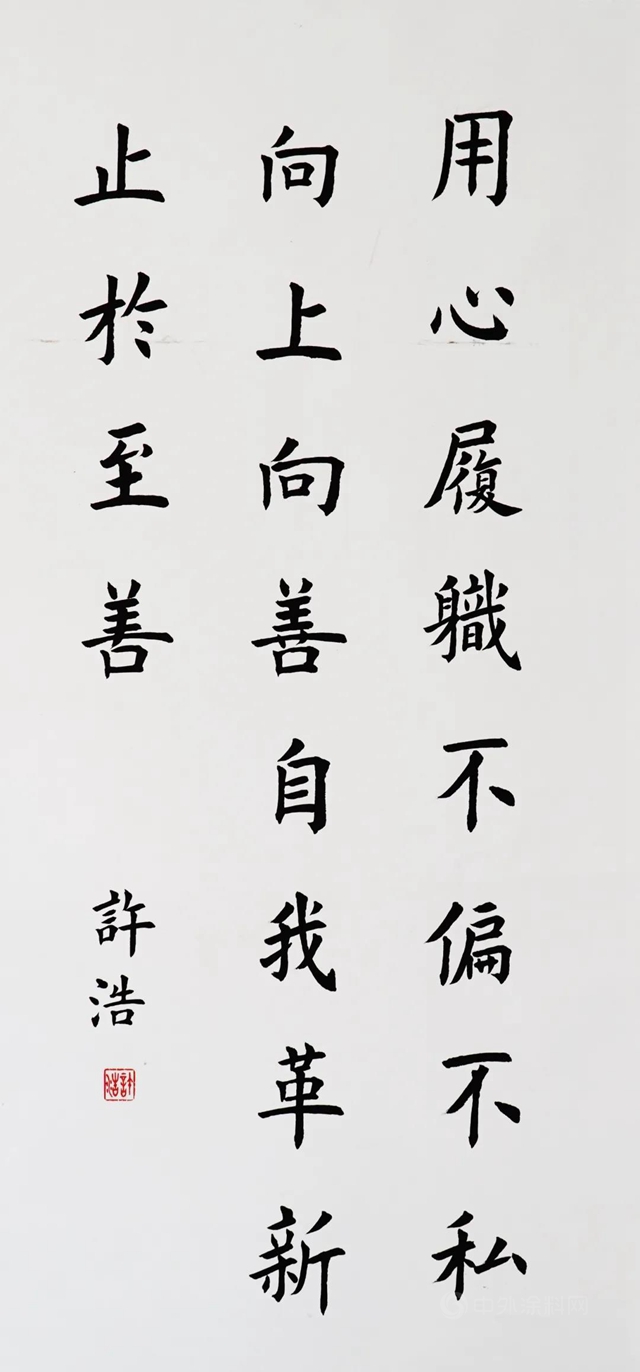 用心履軄不偏不私
向上向善自我革新
止於至善
許浩
許浩
中外涂料网